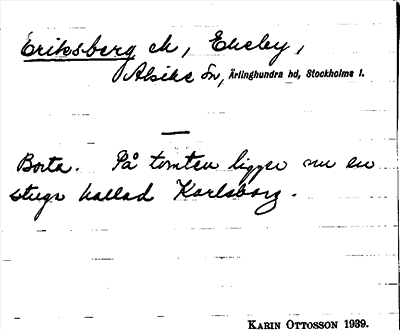 Eriksberg ek, Ekeby,
Alsike sn, Ärlinghundra hd, Stockholms l.
Borta. På tomten ligger nu en
stuga kallad Karlsborg.
KARIN OTTOSSON 1939.